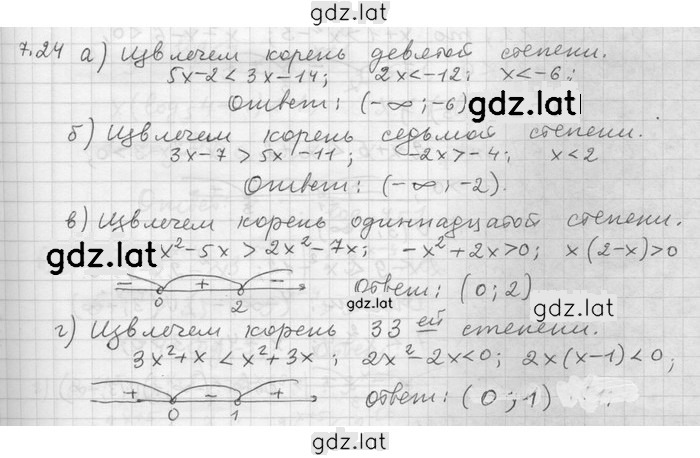 gdz.lat
7.24 а) Извлечем корень девятой степени.
5x-2<3x-14; 2x<-12; x<-6;
Ответ: (-∞; -6) gdz.lat
б) Извлечем корень седьмой степени.
3x-7>5x-11; -2x>-4; x<2
Ответ: (-∞; -2).
в) Извлечем корень одиннадцатой степени.
gdz.lat x²-5x>2x²-7x; -x²+2x>0; x(2-x)>0
- 0 + 2 - Ответ: (0; 2)
gdz.lat gdz.lat
г) Извлечем корень 33 ей степени.
3x²+x<x²+3x; 2x²-2x<0; 2x(x-1)<0;
+ 0 - 1 + Ответ: (0; 1)
gdz.lat